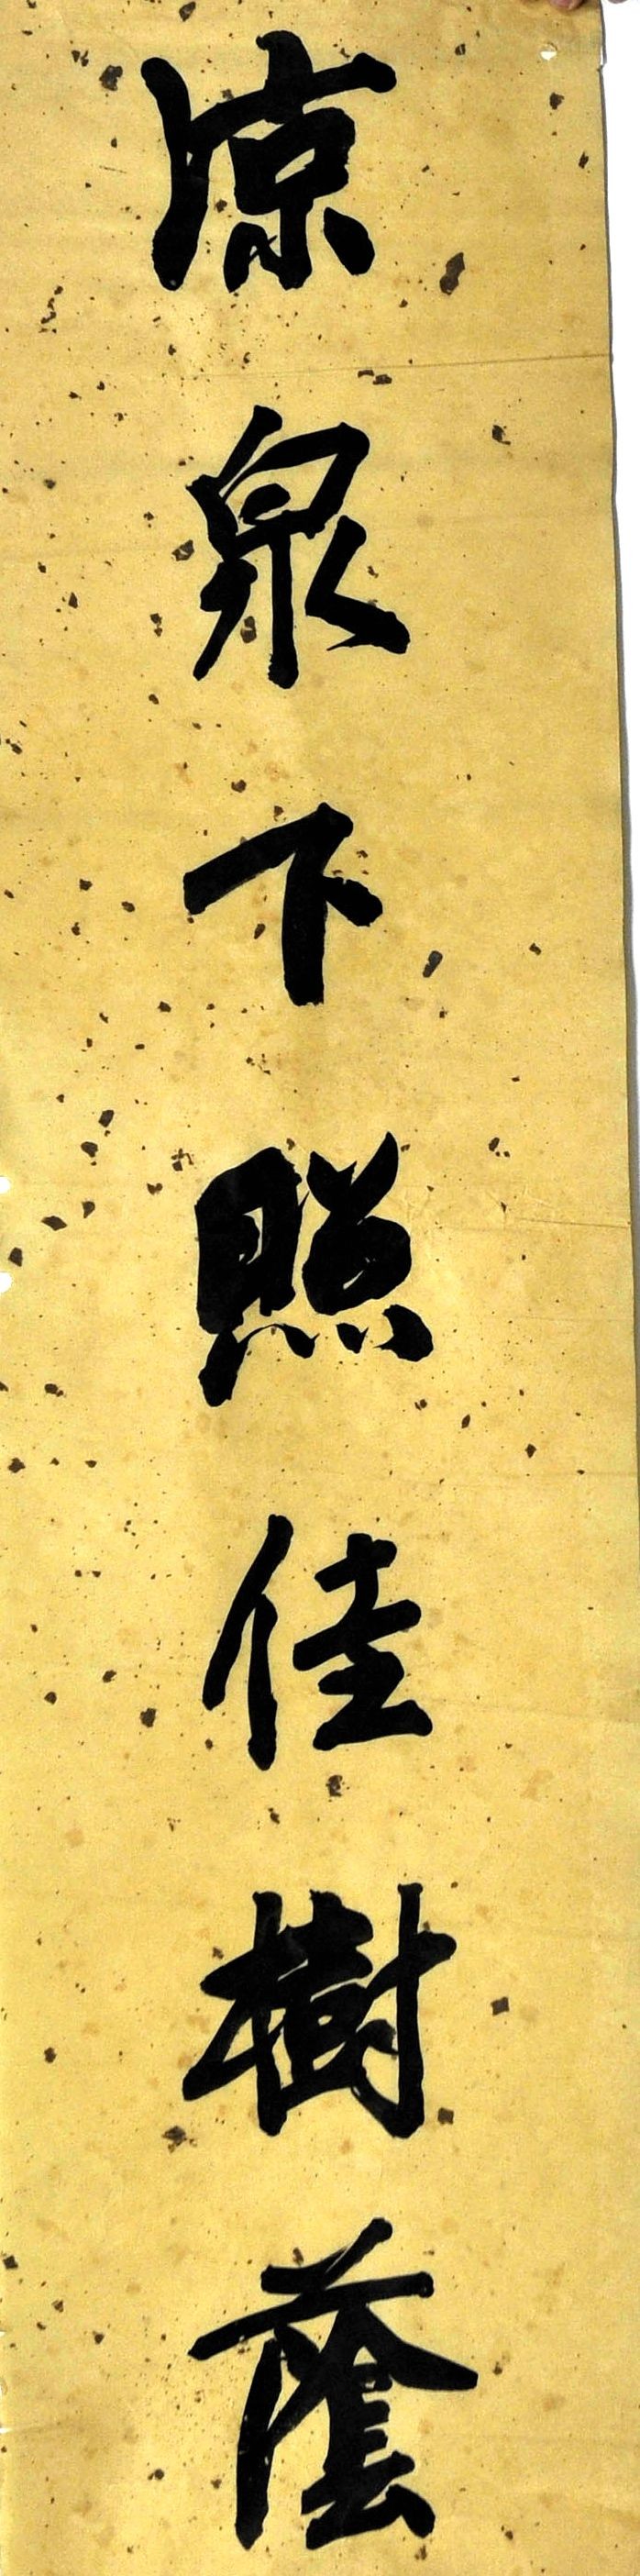 涼泉下照佳樹蔭